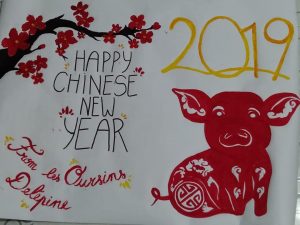 HAPPY
CHINESE
NEW
YEAR
2019
From les Oursins
Delépine